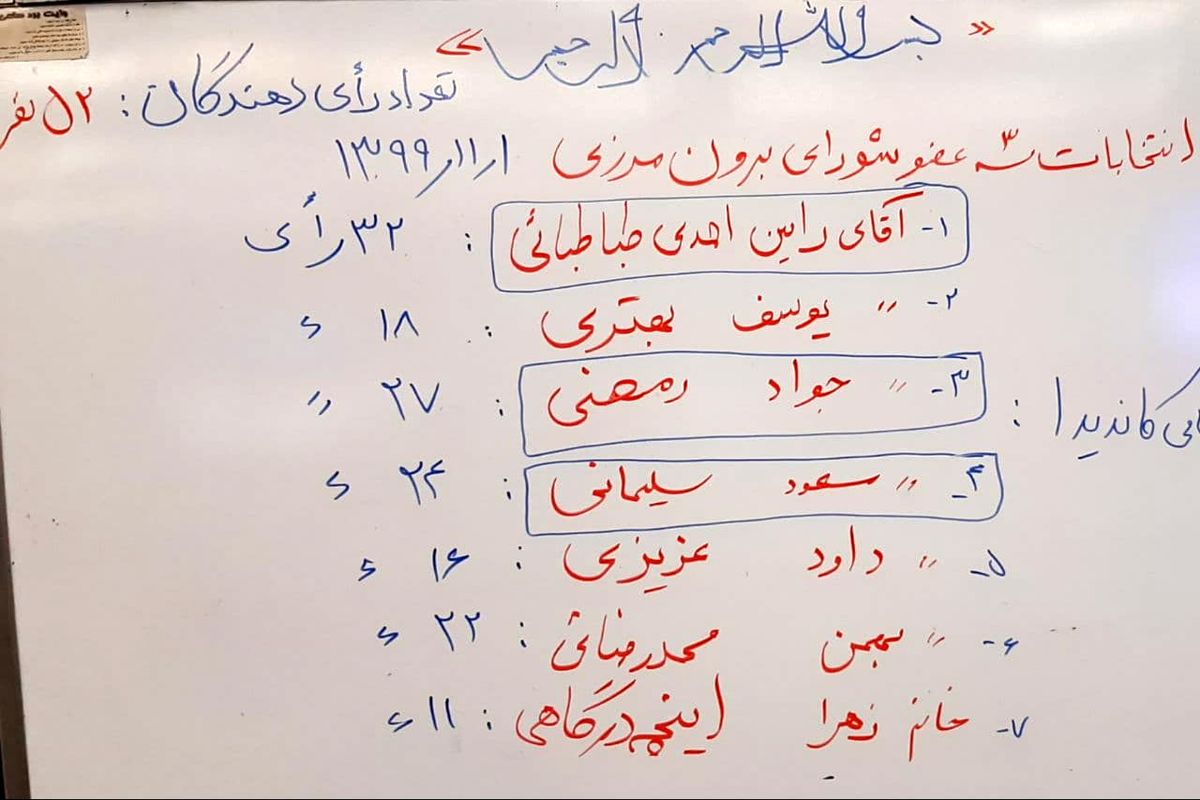 « بسم الله الرحمن الرحیم »
تعداد رأی دهندگان : ۵۲ نفر
انتخابات سه ۳ عضو شورای برون مرزی ۱۳۹۹/۱۱/۱
۱- آقای رامین احمدی طباطبائی : ۳۲ رأی
۲- " یوسف بهتری : ۱۸ ء
کاندیدا :
۳- " جواد رمضنی : ۲۷ "
۴- " سعود سلیمانی : ۲۴ ء
۵- " داود عزیزی : ۱۶ ء
۶- " بهمن محمدرضائی : ۲۲ ء
۷- خانم زهرا اینچه درگاهی : ۱۱ ء